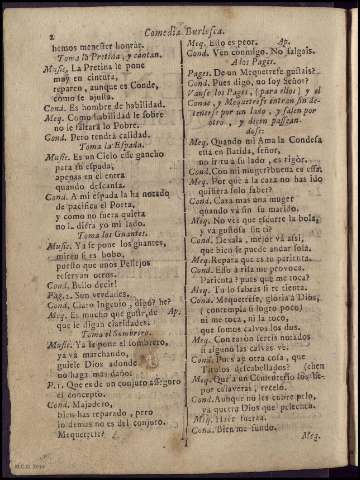 2
Comedia Burlesca.
hemos menester honrar.
Toma la Pretina, y cantan.
Music. La Pretina le pone
muy en cintura,
reparen, aunque es Conde,
como se ajusta.
Cond. Es hombre de habilidad.
Meq. Como habilidad le sobre
no le faltará lo Pobre.
Cond. Pero tendrá calidad.
Toma la Espada.
Music. Es un Cielo este gancho
para su espada,
apenas en el entra
quando descansa.
Cond. A mi espada la ha notado
de pacifica el Poeta,
y como no fuera quieta
no la diera yo mi lado.
Toma los Guantes.
Music. Ya se pone los guantes,
miren si es bobo,
puesto que unos Pellejos
reservan otros.
Cond. Bello decir!
Pag. 2. Son verdades.
Cond. Claro Ingenio, digo? he?
Meq. Es mucho que guste, de Ap.
que le digan claridades.
Toma el Sombrero.
Music. Ya se pone el sombrero,
ya vá marchando,
guiele Dios adonde
no haga mas daño.
P. 1. Que es de un conjuto asseguro
el concepto.
Cond. Majadero,
bien has reparado, pero
lo demus no es del conjuro.
Mequetrefe
Meq. Esso es peor. Ap.
Cond. Ven conmigo. No salgais.
A los Pages.
Pages. De un Mequetrefe gustais?
Cond. Pues digo, no soy Señor?
Vanse los Pages, (para ellos) y el
Conde, y Mequetrefe entran sin detenerse
por un lado, y salen por
otro, y dicen passeandose:
Meq. Quando mi Ama la Condesa
está en Batida, señor,
no ir tu a su lado, es rigor.
Cond. Con mi muger? buena es essa.
Meq. Por qué a la caza no has ido
quisiera solo saber?
Cond. Caza mas una muger
quando vá sin su marido.
Meq. No ves que escurre la bola,
y vá gustosa sin ti?
Cond. Dexala, mejor vá assi,
que bien se puede andar sola.
Meq. Repara que es tu parienta.
Cond. Esso à risa me provoca.
Parienta? pues qué me toca?
Meq. Tu lo sabrás si te tienta.
Cond. Mequetrefe, gloria à Dios,
( contempla si logro poco)
ni me toca, ni la toco,
que somos calvos los dos.
Meq. Con razon sereis notados
si alguno las calvas vè.
Cond. Pues ay otra cosa, que
Titulos descabellados? (chen
Meq. Que à un Cementerio los
por calaveras, rezelo.
Cond. Aunque no les cubre pelo,
ya querrá Dios que pelechen.
Meq. Hace fuerza.
Cond. Bien me fundo.
Meq.